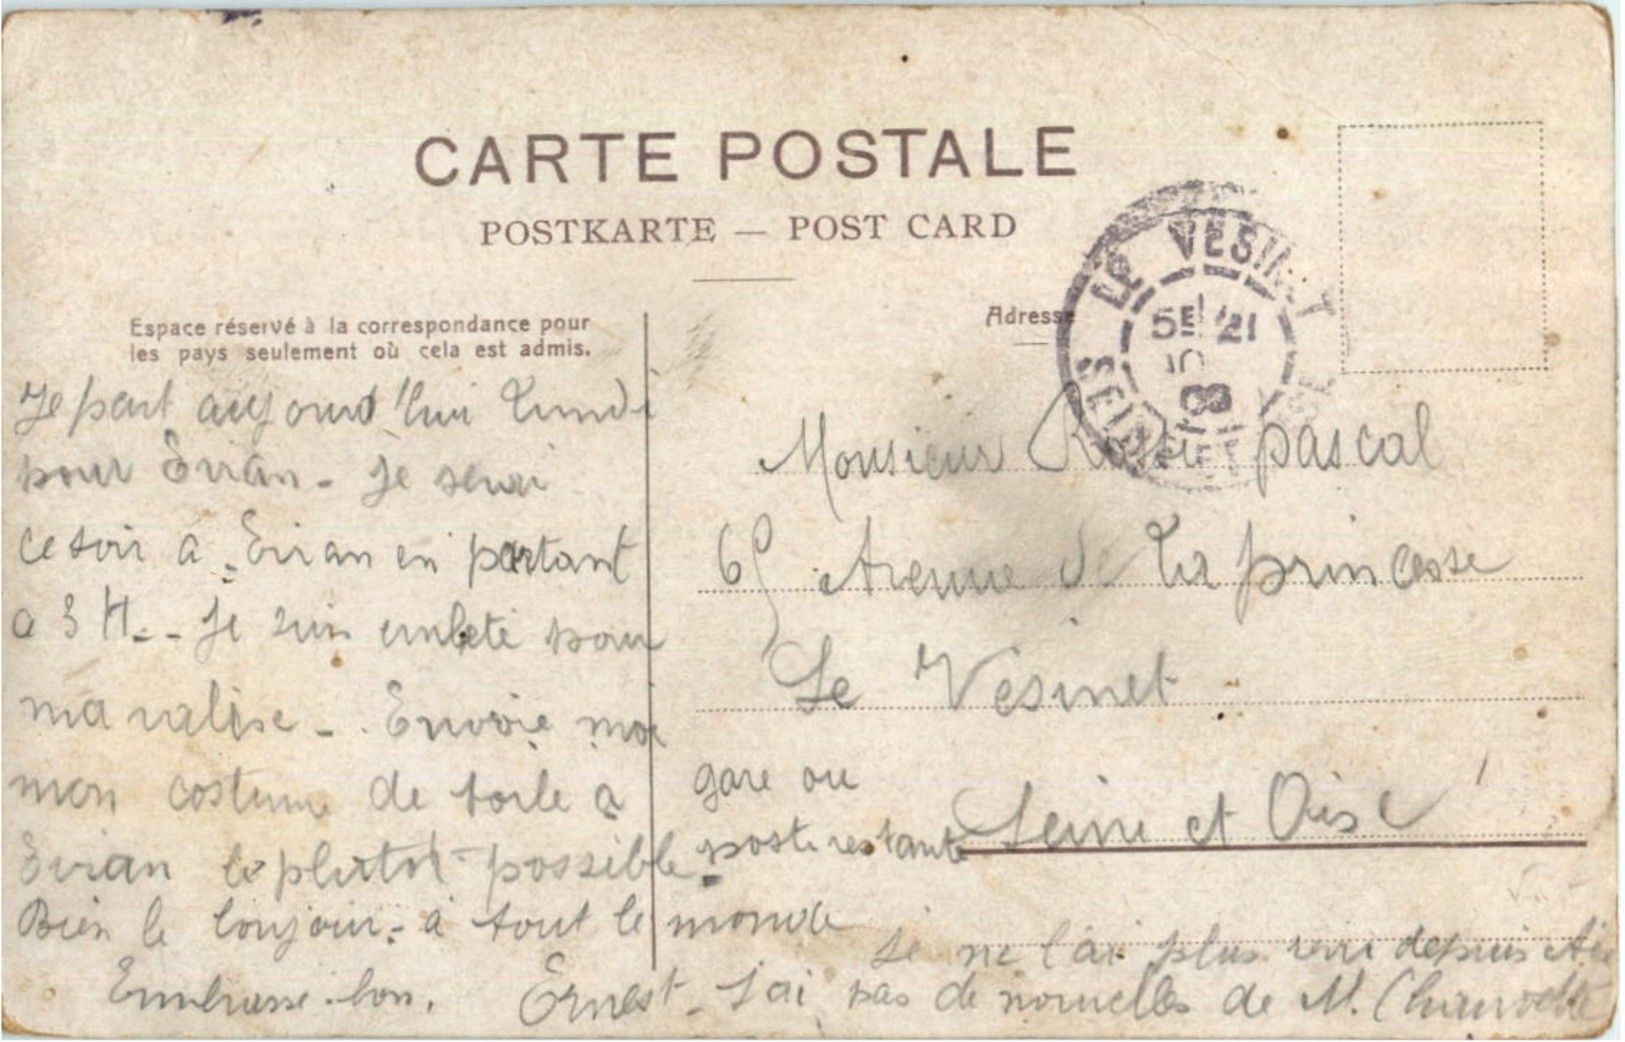 CARTE POSTALE
POSTKARTE — POST CARD
Espace réservé à la correspondance pour
les pays seulement où cela est admis.
Adresse
LE VESINET
SEINE ET OISE
21
10
08
Je part aujourd'hui Lundi
pour Evian - Je serai
ce soir a - Evian en partant
a 3 H. - Je suis embeté pour
ma valise - . Envoie moi
mon costume de toile a
Evian le plutot possible
gare ou
poste restante
Bien le bonjour - à tout le monde
Embrasse - bon. Ernest - J'ai pas de nouvelles de M.
Je ne l'ai plus revu depuis
Monsieur pascal
69 Avenue de La princesse
Le Vesinet
Seine et Oise